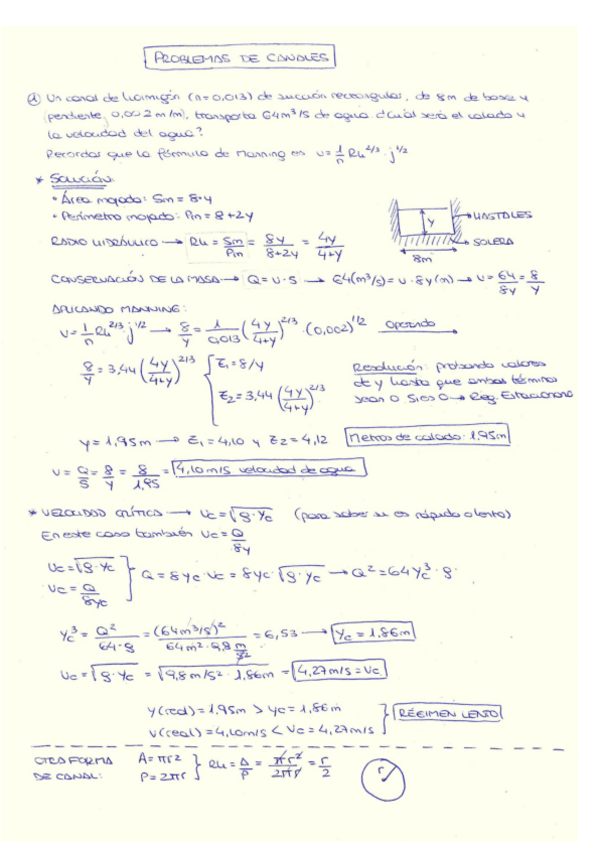 PROBLEMAS DE CANALES
① Un canal de hormigón (n=0,013) de sección rectangular, de 8m de base y
pendiente 0,002 m/m, transporta 64m³/s de agua. ¿Cuál será el calado y
la velocidad del agua?
Recordar que la fórmula de Manning es v = 1/n Rh^2/3 · j^1/2
* SOLUCIÓN:
• Área mojada: Sm = 8·y
• Perímetro mojado: Pm = 8+2y
RADIO HIDRÁULICO → Rh = Sm/Pm = 8y/(8+2y) = 4y/(4+y)
y
HASTIALES
SOLERA
8m
CONSERVACIÓN DE LA MASA → Q = v·S → 64(m³/s) = v·8y(m) → v = 64/8y = 8/y
APLICANDO MANNING:
v = 1/n Rh^2/3 j^1/2 → 8/y = 1/0,013 (4y/(4+y))^2/3 · (0,002)^1/2 Operando →
8/y = 3,44 (4y/(4+y))^2/3 { Z₁ = 8/y
Z₂ = 3,44 (4y/(4+y))^2/3
Resolución: probando valores
de y hasta que ambos términos
sean 0. Si es 0 → Reg. Estacionario
y = 1,95m → Z₁ = 4,10 y Z₂ = 4,12 Metros de calado: 1,95m
v = Q/S = 8/y = 8/1,95 = 4,10 m/s velocidad de agua
* VELOCIDAD CRÍTICA → Vc = √g·Yc (para saber si es rápido o lento)
En este caso también Vc = Q/8y
Vc = √g·Yc
Vc = Q/8yc } Q = 8yc·Vc = 8yc·√g·Yc → Q² = 64Yc³·g
Yc³ = Q²/64·g = (64m³/s)²/64m²·9,8 m/s² = 6,53 → Yc = 1,86m
Vc = √g·Yc = √9,8 m/s²·1,86m = 4,27m/s = Vc
Y(real) = 1,95m > Yc = 1,86m
V(real) = 4,10m/s < Vc = 4,27m/s } RÉGIMEN LENTO
OTRA FORMA
DE CANAL:
A = πr²
P = 2πr } Rh = A/P = πr²/2πr = r/2
r